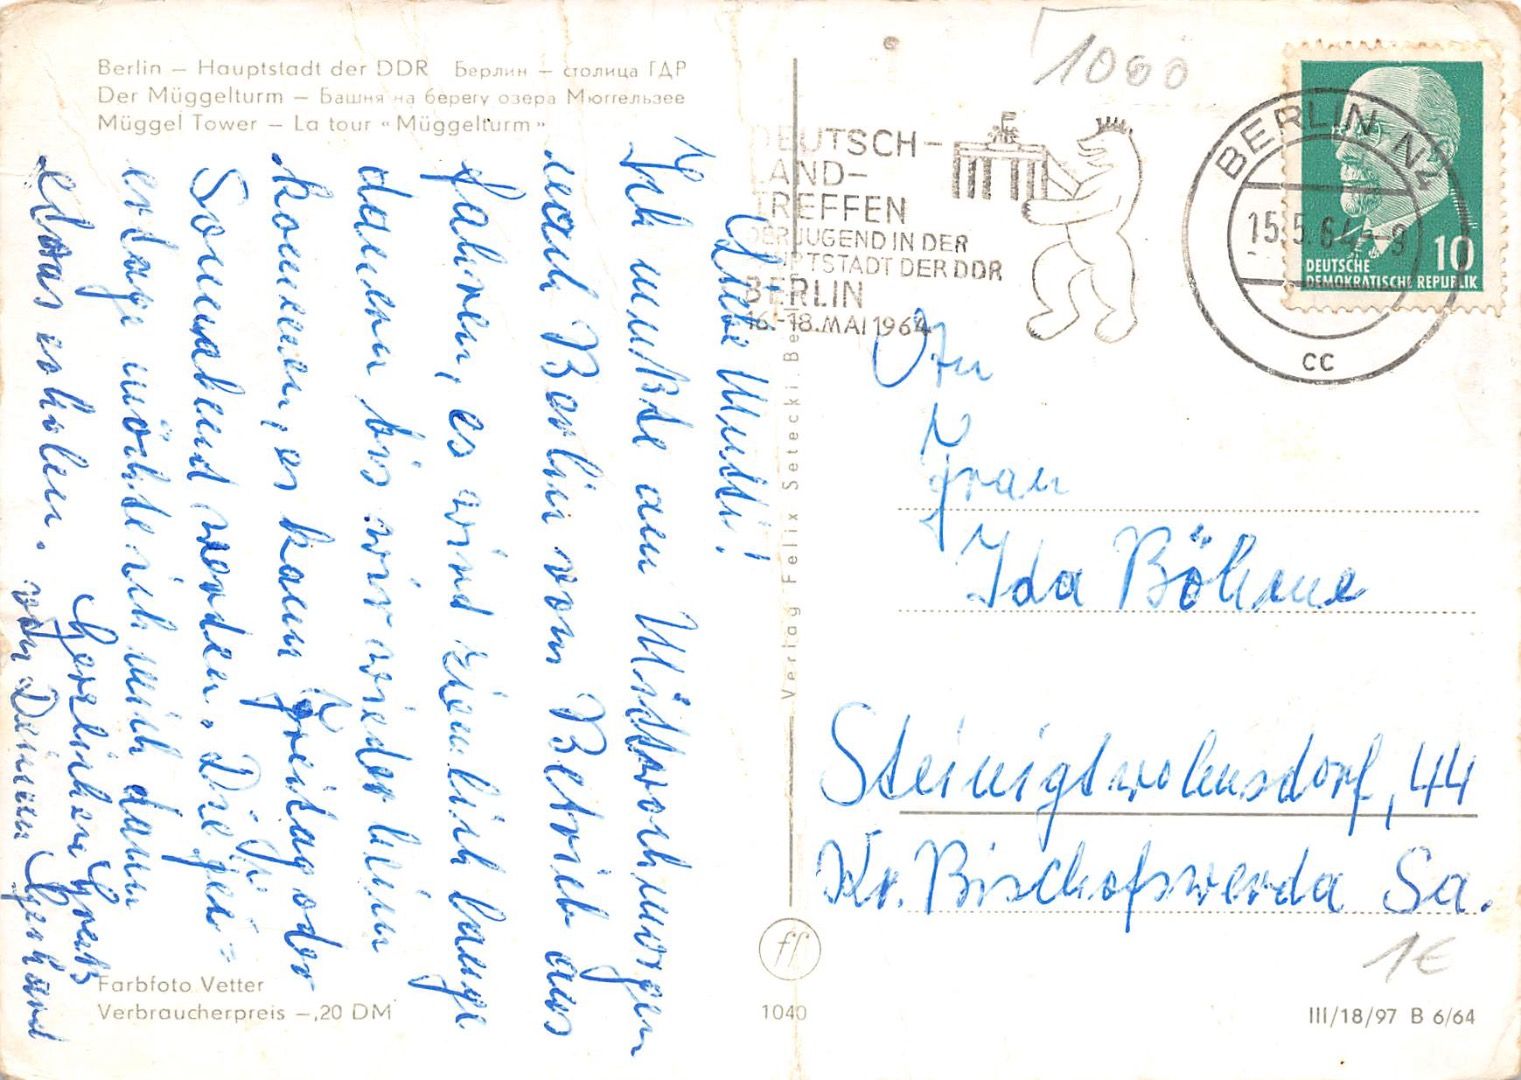 Berlin – Hauptstadt der DDR Берлин – столица ГДР
Der Müggelturm – Башня на берегу озера Мюггельзее
Müggel Tower – La tour «Müggelturm»
Liebe Mutti!
Ich mußte am Mittwochmorgen
nach Berlin vom Betrieb aus
fahren, es wird ziemlich lange
dauern bis wir wieder heim
kommen, es kann Freitag oder
Sonnabend werden. Die Fei-
ertage möchte ich mich dann
etwas erholen.
Herzlichen Gruß
von Deinem Gerhard
Farbfoto Vetter
Verbraucherpreis –,20 DM
Verlag Felix Setecki, Be
ff
1040
1000
DEUTSCH-
LAND-
TREFFEN
DER JUGEND IN DER
HAUPTSTADT DER DDR
BERLIN
16.-18. MAI 1964
BERLIN N4
15.5.64-9
cc
10
DEUTSCHE
DEMOKRATISCHE REPUBLIK
An
Frau
Ida Böhme
Steinigtwolmsdorf, 44
Kr. Bischofswerda Sa.
1€
III/18/97 B 6/64